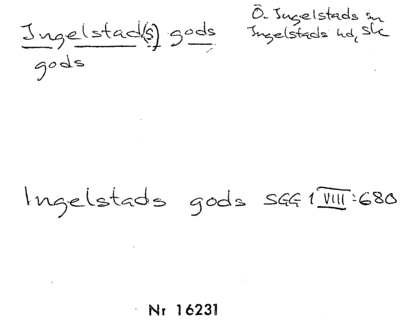 Ingelstad(s) gods
gods
Ö. Ingelstads sn
Ingelstads hd, Sk
Ingelstads gods SGG 1 VIII:680
Nr 16231